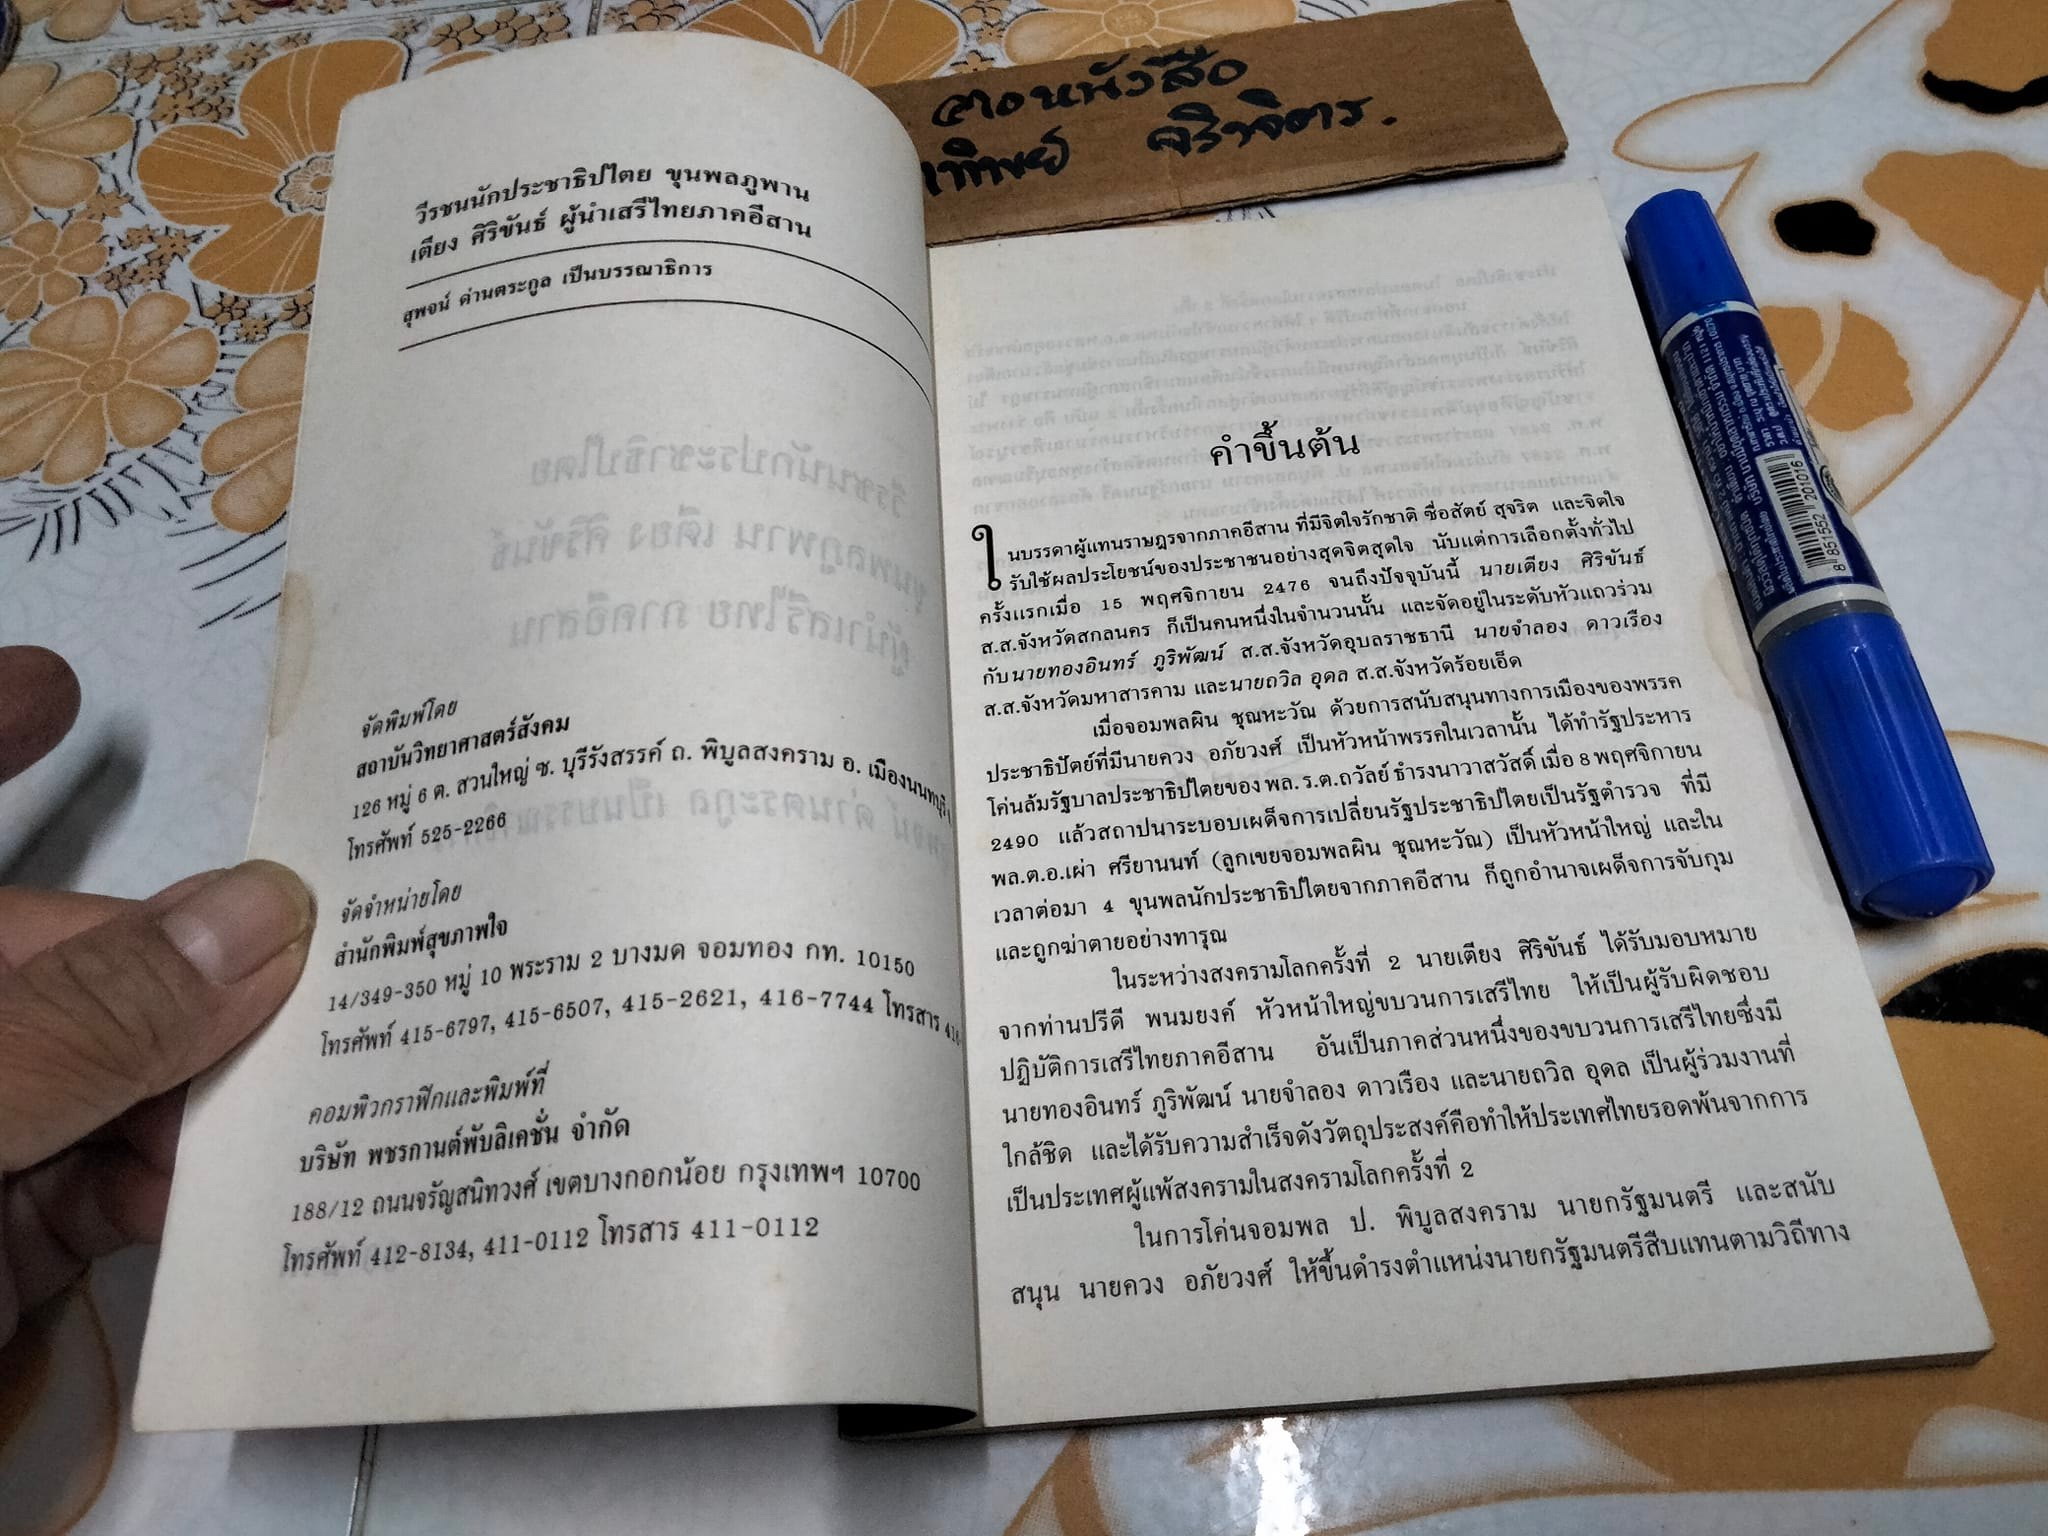 วีรชนนักประชาธิปไตย ขุนพลภูพาน
เตียง ศิริขันธ์ ผู้นำเสรีไทยภาคอีสาน
สุพจน์ ด่านตระกูล เป็นบรรณาธิการ
จัดพิมพ์โดย
สถาบันวิทยาศาสตร์สังคม
126 หมู่ 6 ต. สวนใหญ่ ซ. บุรีรังสรรค์ ถ. พิบูลสงคราม อ. เมืองนนทบุรี
โทรศัพท์ 525-2266
จัดจำหน่ายโดย
สำนักพิมพ์สุขภาพใจ
14/349-350 หมู่ 10 พระราม 2 บางมด จอมทอง กท. 10150
โทรศัพท์ 415-6797, 415-6507, 415-2621, 416-7744 โทรสาร 416-
คอมพิวกราฟิกและพิมพ์ที่
บริษัท พชรกานต์พับลิเคชั่น จำกัด
188/12 ถนนจรัญสนิทวงศ์ เขตบางกอกน้อย กรุงเทพฯ 10700
โทรศัพท์ 412-8134, 411-0112 โทรสาร 411-0112
หนังสือ
จริงจิตร.
คำขึ้นต้น
ในบรรดาผู้แทนราษฎรจากภาคอีสาน ที่มีจิตใจรักชาติ ซื่อสัตย์ สุจริต และจิตใจ
รับใช้ผลประโยชน์ของประชาชนอย่างสุดจิตสุดใจ นับแต่การเลือกตั้งทั่วไป
ครั้งแรกเมื่อ 15 พฤศจิกายน 2476 จนถึงปัจจุบันนี้ นายเตียง ศิริขันธ์
ส.ส.จังหวัดสกลนคร ก็เป็นคนหนึ่งในจำนวนนั้น และจัดอยู่ในระดับหัวแถวร่วม
กับนายทองอินทร์ ภูริพัฒน์ ส.ส.จังหวัดอุบลราชธานี นายจำลอง ดาวเรือง
ส.ส.จังหวัดมหาสารคาม และนายถวิล อุดล ส.ส.จังหวัดร้อยเอ็ด
เมื่อจอมพลผิน ชุณหะวัณ ด้วยการสนับสนุนทางการเมืองของพรรค
ประชาธิปัตย์ที่มีนายควง อภัยวงศ์ เป็นหัวหน้าพรรคในเวลานั้น ได้ทำรัฐประหาร
โค่นล้มรัฐบาลประชาธิปไตยของ พล.ร.ต.ถวัลย์ ธำรงนาวาสวัสดิ์ เมื่อ 8 พฤศจิกายน
2490 แล้วสถาปนาระบอบเผด็จการเปลี่ยนรัฐประชาธิปไตยเป็นรัฐตำรวจ ที่มี
พล.ต.อ.เผ่า ศรียานนท์ (ลูกเขยจอมพลผิน ชุณหะวัณ) เป็นหัวหน้าใหญ่ และใน
เวลาต่อมา 4 ขุนพลนักประชาธิปไตยจากภาคอีสาน ก็ถูกอำนาจเผด็จการจับกุม
และถูกฆ่าตายอย่างทารุณ
ในระหว่างสงครามโลกครั้งที่ 2 นายเตียง ศิริขันธ์ ได้รับมอบหมาย
จากท่านปรีดี พนมยงค์ หัวหน้าใหญ่ขบวนการเสรีไทย ให้เป็นผู้รับผิดชอบ
ปฏิบัติการเสรีไทยภาคอีสาน อันเป็นภาคส่วนหนึ่งของขบวนการเสรีไทยซึ่งมี
นายทองอินทร์ ภูริพัฒน์ นายจำลอง ดาวเรือง และนายถวิล อุดล เป็นผู้ร่วมงานที่
ใกล้ชิด และได้รับความสำเร็จดังวัตถุประสงค์คือทำให้ประเทศไทยรอดพ้นจากการ
เป็นประเทศผู้แพ้สงครามในสงครามโลกครั้งที่ 2
ในการโค่นจอมพล ป. พิบูลสงคราม นายกรัฐมนตรี และสนับ
สนุน นายควง อภัยวงศ์ ให้ขึ้นดำรงตำแหน่งนายกรัฐมนตรีสืบแทนตามวิถีทาง
8 851552 201016